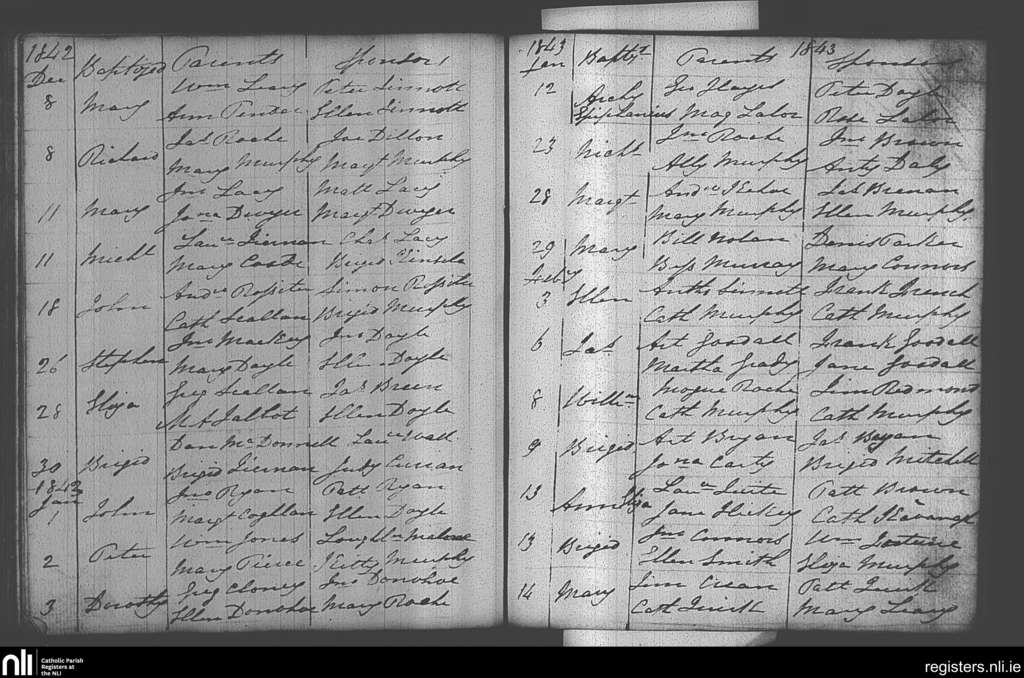 1842
Dec Baptized Parents Sponsors
Wm Leary Peter Sinnott
8 Mary Ann Ellen Sinnott
Jas Roche Jas Dillon
8 Richard Mary Murphy Margt Murphy
Jno Lacy Matt Lacy
11 Mary Jona Dwyer Margt Dwyer
Lawce Tiernan Chas Lacy
11 Michl Mary Brigid Kinsela
Andw Rossiter Simon Rossiter
18 John Cath Scallan Brigid Murphy
Jno Mackey Jno Doyle
26 Stephen Mary Doyle Ellen Doyle
Greg Scallan Jas Breen
28 Eliza M A Talbot Ellen Doyle
Dan McDonnell Lawce Wall
30 Brigid Brigid Tiernan Judy Curran
1843
Jan Jno Ryan Patt Ryan
1 John Margt Coghlan Ellen Doyle
Wm Jones Loughlin Malone
2 Peter Mary Pierce Kitty Murphy
Greg Cloney Jno Donohoe
3 Dorothy Ellen Donohoe Mary Roche
1843 1843
Jan Bapt Parents Sponsors
12 Archy Geo Hayes Peter Doyle
Epiphanius Mag Lalor Rose Lalor
23 Jno Roche Jno Brown
Michl Ally Murphy Anty Daly
28 Margt Andw Kehoe Jas Brenan
Mary Murphy Ellen Murphy
29 Mary Bill Nolan Denis Parker
Feby Bess Murray Mary Connors
3 Ellen Anth Sinnott Frank French
Cath Murphy Cath Murphy
6 Jas Art Goodall Frank Goodall
Martha Grady Jane Goodall
8 Willm Mogue Roche Jim Redmond
Cath Murphy Cath Murphy
9 Brigid Art Bryan Jas Bryan
Jona Carty Brigid Mitchell
13 Ann Eliza Lawce Patt Brown
Jane Hickey Cath Kavanagh
13 Brigid Jno Connors Wm
Ellen Smith Eliza Murphy
14 Mary Jim Crean Patt Quirk
Cath Quirk Mary Leary
nli Catholic Parish
Registers at
the NLI
registers.nli.ie